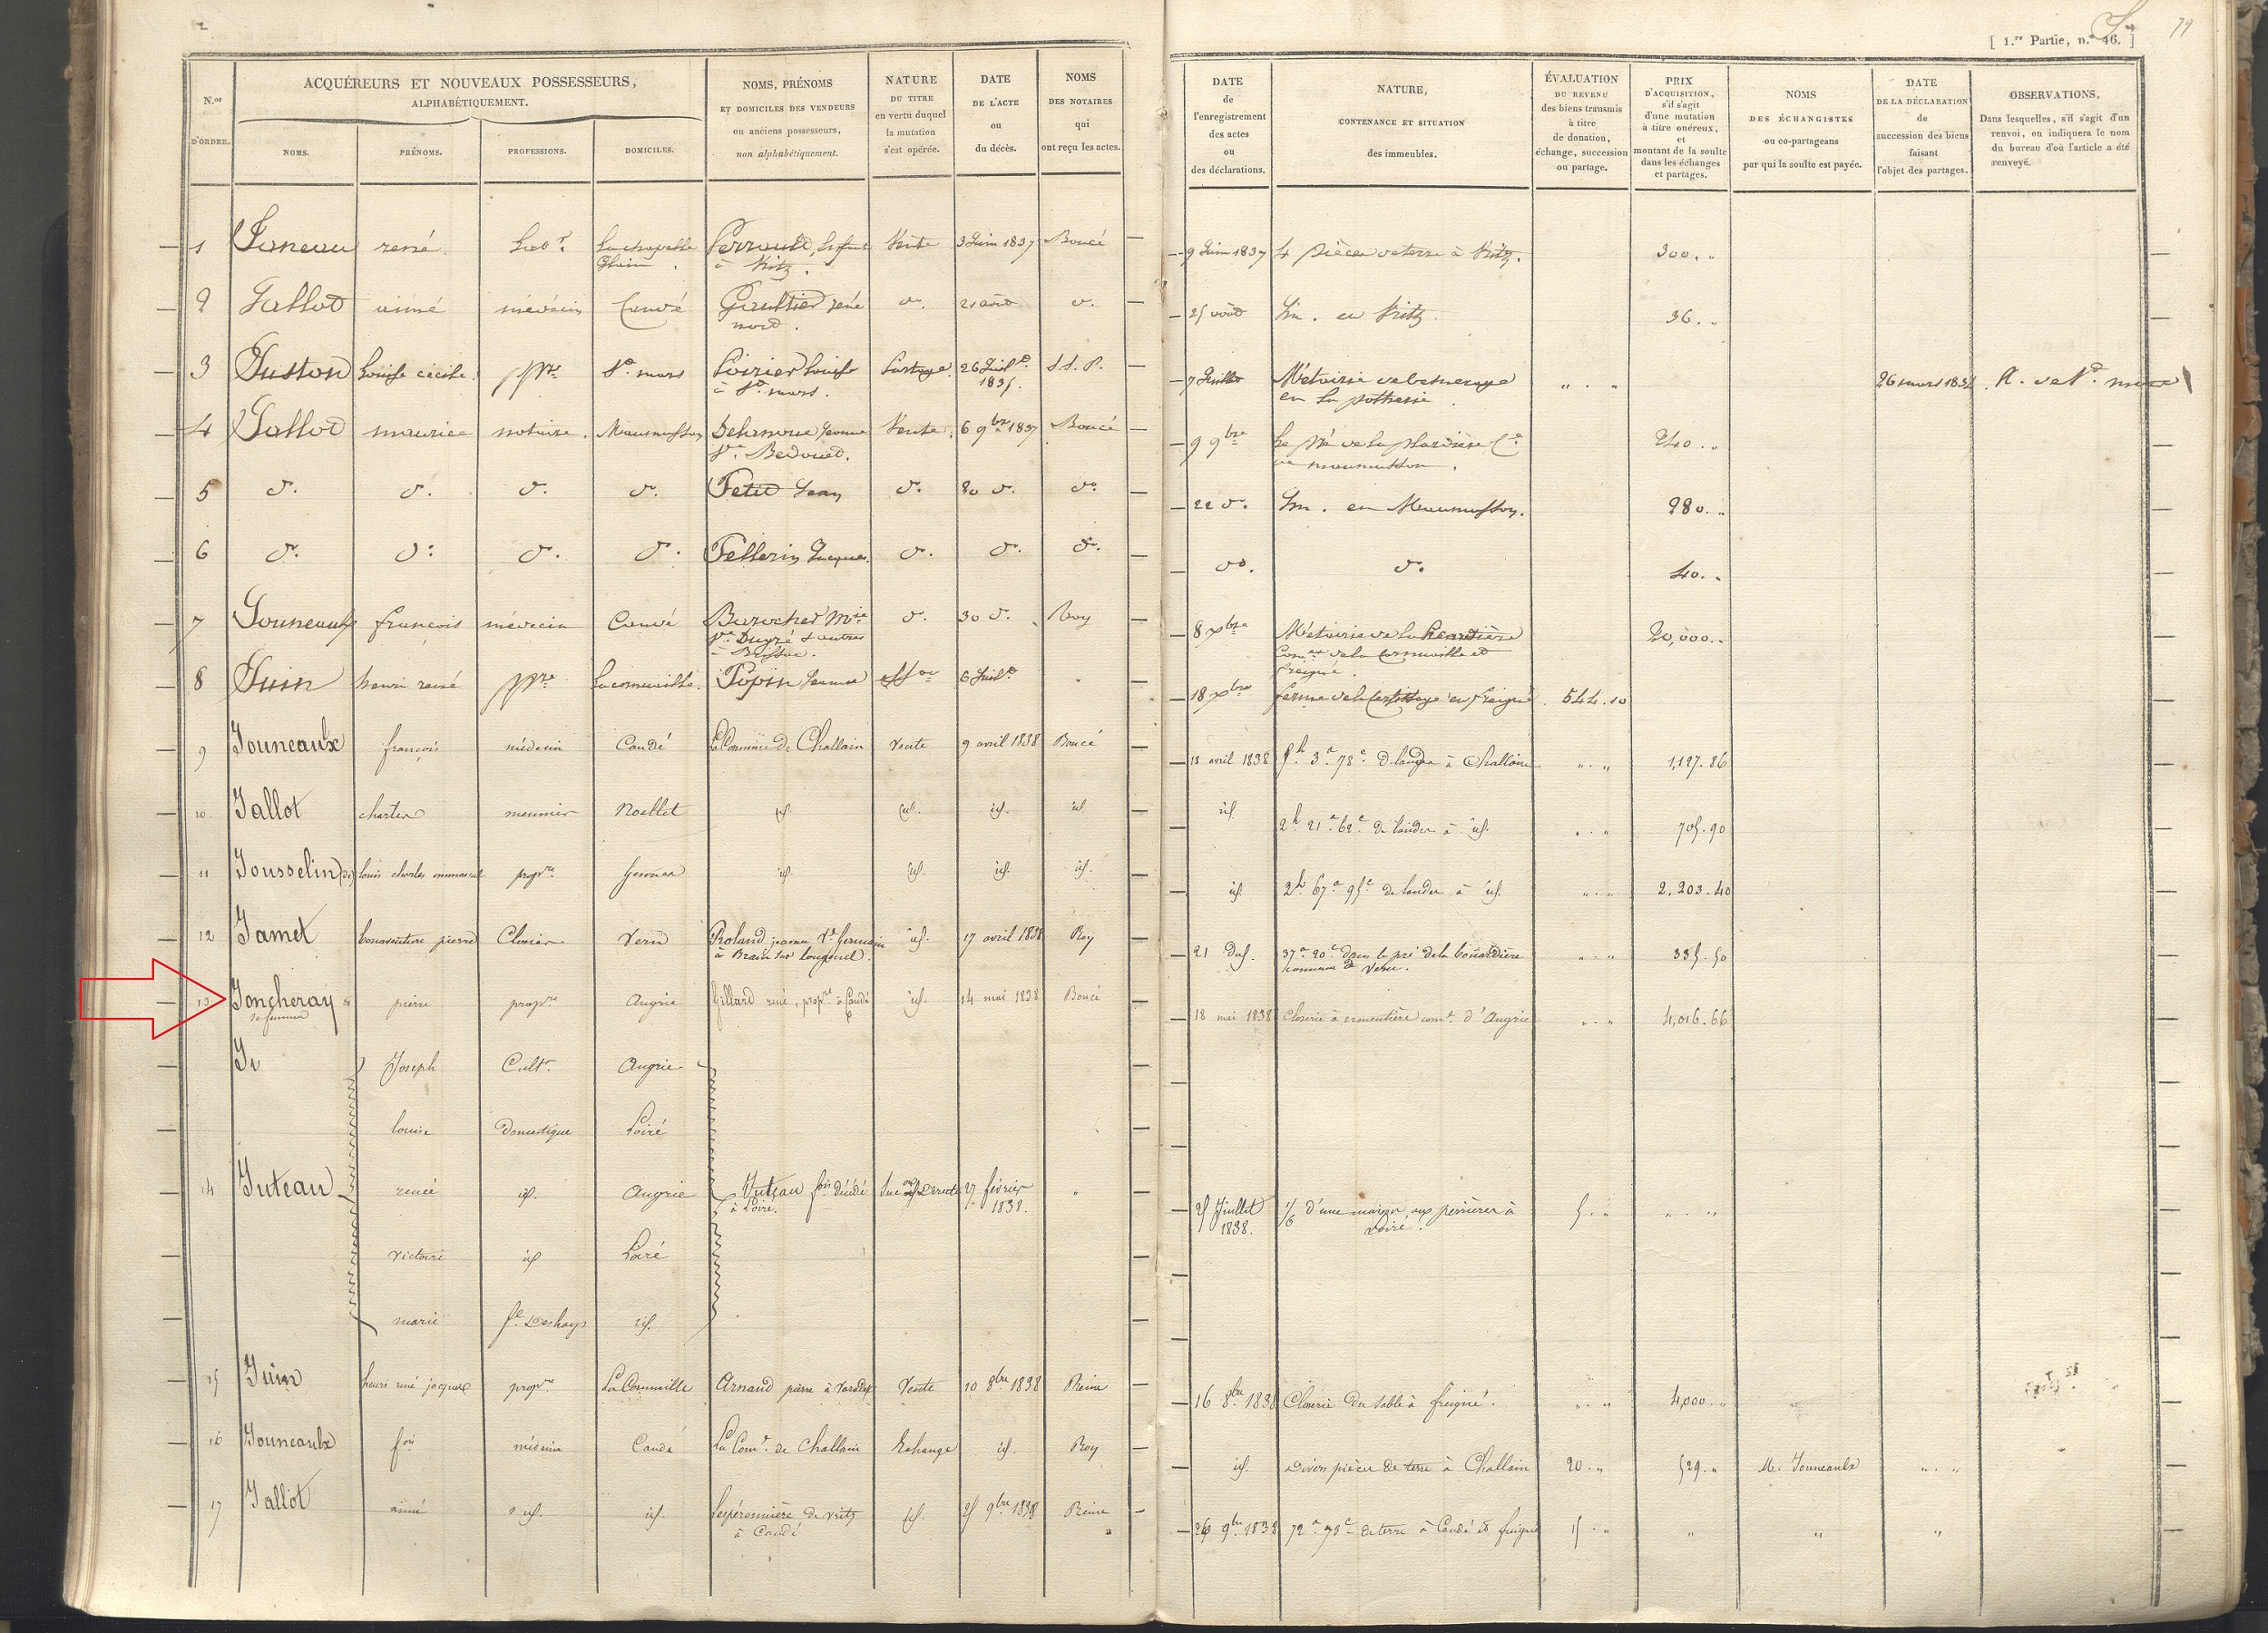 79
[ 1.re Partie, n.o 46. ]
N.os D'ORDRE.
ACQUÉREURS ET NOUVEAUX POSSESSEURS,
ALPHABÉTIQUEMENT.
NOMS.
PRÉNOMS.
PROFESSIONS.
DOMICILES.
NOMS, PRÉNOMS
ET DOMICILES DES VENDEURS
ou anciens possesseurs,
non alphabétiquement.
NATURE
DU TITRE
en vertu duquel
la mutation
s'est opérée.
DATE
DE L'ACTE
ou
du décès.
NOMS
DES NOTAIRES
qui
ont reçu les actes.
DATE
de
l'enregistrement
des actes
ou
des déclarations.
NATURE,
CONTENANCE ET SITUATION
des immeubles.
ÉVALUATION
DU REVENU
des biens transmis
à titre
de donation,
échange, succession
ou partage.
PRIX
D'ACQUISITION,
s'il s'agit
d'une mutation
à titre onéreux,
et
montant de la soulte
dans les échanges
et partages.
NOMS
DES ÉCHANGISTES
ou co-partageans
par qui la soulte est payée.
DATE
DE LA DÉCLARATION
de
succession des biens
faisant
l'objet des partages.
OBSERVATIONS,
Dans lesquelles, s'il s'agit d'un
renvoi, on indiquera le nom
du bureau d'où l'article a été
renvoyé.
1 Janeau rené La chapelle Vente 3 Juin 1837 Boucé 9 Juin 1837 4 pièces de terre à Vritz. 300. "
Glain. à Vritz.
2 Jallot aimé médecin Candé Gaultier rené do. 21 août do. 25 août en Vritz. 36. "
3 Juston Louise cécile ppre St. mars Poirier Louise Partage 26 Juillet S.S.P. 7 Juillet Métairie " . " 26 mars
à St. mars. en la potherie
4 Jallot maurice notaire. Maumusson Delanoue Vente 6 9bre 1837 Boucé 9 9bre Le pré de la 240. "
de maumusson.
5 do. do. do. do. Petit Jean do. 20 do. do. 22 do. en Maumusson. 280. "
6 do. do. do. do. Pellerin Jacques do. do. do. do. do. 40. "
7 Jouneaulx françois médecin Candé do. 30 do. Roy 8 xbre Métairie de la 20,000. "
à Brissac. la Cornuaille et
freigné.
8 Juin henri rené ppre La cornuaille. Popin Jeanne 6 Juillet " 18 xbre ferme de en freigné 544.10
9 Jouneaulx françois médecin Candé La Commune De Challain vente 9 avril 1838 Boucé 18 avril 1838 5h 3a 78c De landes à Challain " . " 1,127.86
10 Jallot charles meunier Noellet id. id. id. id. id. 2h 21a 62c de landes à id. " . " 705.90
11 Jousselin (de) louis charles emmanuel propre id. id. id. id. id. 2h 67a 95c de landes à id. " . " 2,203.40
12 Jamet bonaventure pierre Closier Vern Roland jeanne Ve Germain id. 17 avril 1838 Roy 21 Dud. 37a 20c dans le pré de la 335.50
à Brain sur longuenée. commune de Vern.
13 Joncheray & pierre propre Angrie Gillard rené, propre à Candé id. 14 mai 1838 Boucé 18 mai 1838 Closerie à ermentière comne d'Angrie " . " 4,016.66
sa femme
Joseph Cultr. Angrie
louise Domestique Loiré
14 Juteau renée id. Angrie Juteau fois décédé Directe 27 février " 25 Juillet 1/6 d'une maison aux perrières à 5. " " . "
à Loiré. 1838. 1838. Loiré.
victoire id Loiré
marie fe Deshays id.
15 Juin henri rené jacques propre La Cornuaille Arnaud pierre à Vente 10 8bre 1838 Reine 16 8bre 1838 Closerie du sable à freigné. " . " 4,000. "
16 Jouneaulx fois médecin Candé La Comne de Challain Echange id. Roy id. Divers pièces de terre à Challain 20. " 529. " M. Jouneaulx " . "
17 Jallot aimé id. id. Lespéronnière de Vritz id. 25 9bre 1838 Reine 26 9bre 1838 72a 78c de terre à Candé et freigné 15. " " " "
à Candé